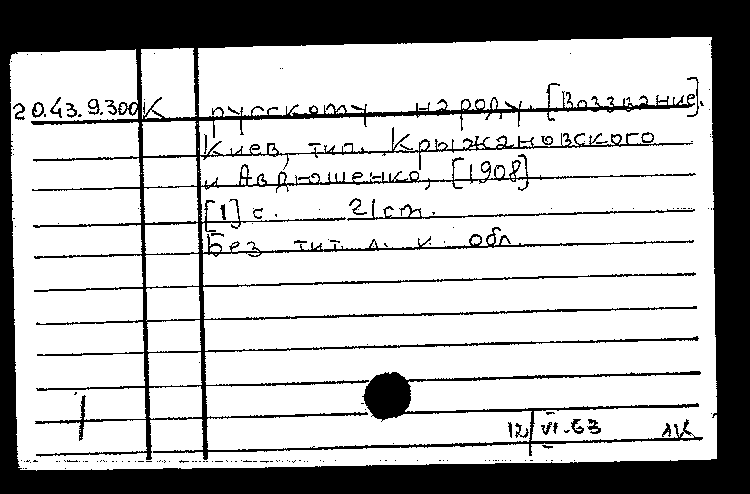 20.43.9.300 К русскому народу. [Воззвание].
Киев, тип. Крыжановского
и Авдюшенко, [1908].
[1] с. 21 cm.
Без тит. л. и обл.
12/VI.63 ЛК